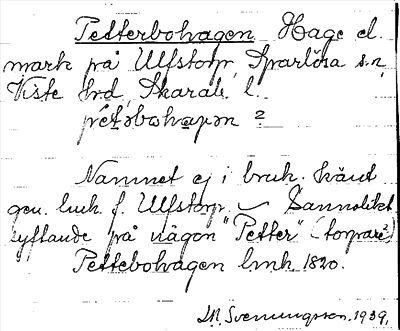 Petterbohagen Hage el.
mark på Ulfstorp, Sparlösa sn,
Viste hrd, Skarab. l.
pétərbohagən ?
Namnet ej i bruk. Känt
gen. lmk. f. Ulfstorp. – Sannolikt
syftande på någon "Petter" (torpare?)
Pettebohagen lmk 1820.
M. Svenungsson. 1939.